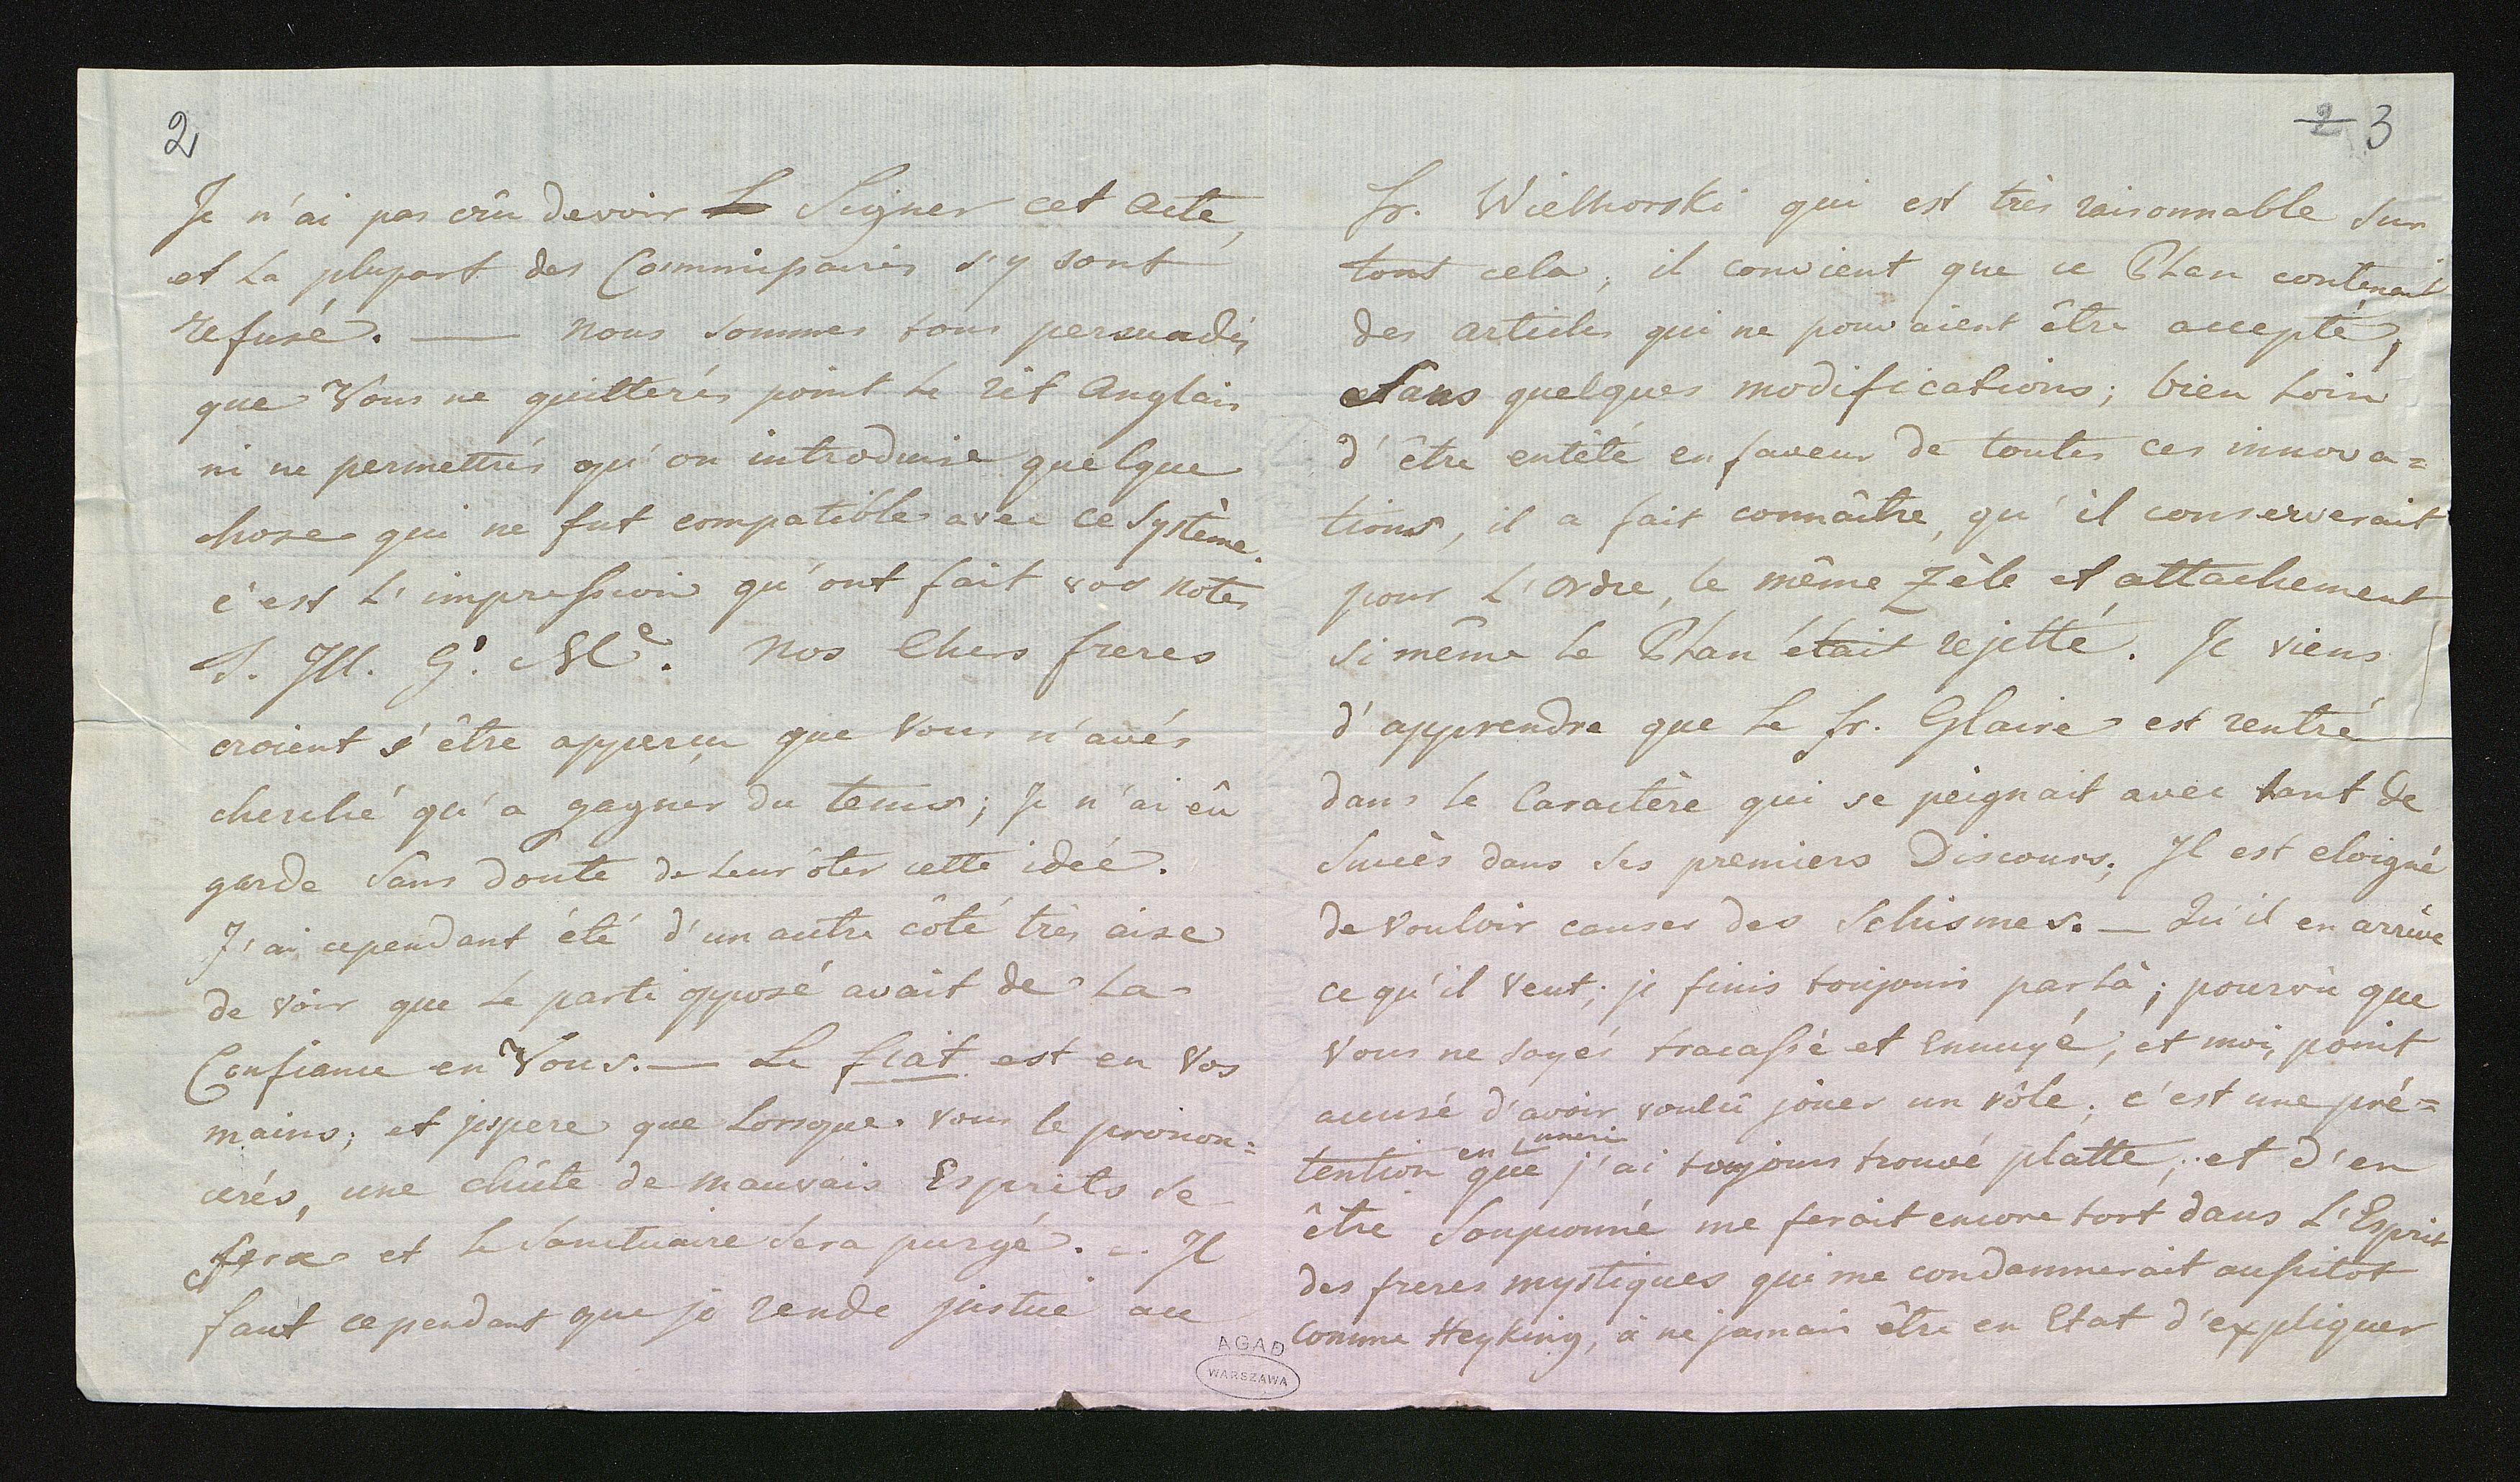 2
Je n'ai pas crû devoir Signer cet acte,
et La plupart des Commissaires s'y sont
refusé. — Nous sommes tous persuadés
que Vous ne quitterés point Le rit Anglais
ni ne permettrés qu'on introduise quelque
chose qui ne fut compatible avec ce Système.
c'est L'impression qu'ont fait vos notes
S. Ill. G. Me. Nos Chers freres
croient s'être apperçu que Vous n'avés
cherché qu'a gagner du tems; Je n'ai eû
garde sans doute de Leur ôter cette idée.
J'ai cependant été d'un autre côté très aise
de voir que Le parti opposé avait de La
Confiance en Vous. — Le fiat est en Vos
mains; et j'espere que Lorsque vous le pronon=
cerés, une chûte de mauvais Esprits se
fera et Le Sanctuaire sera purgé. — Il
faut cependant que je rende justice au
2 3
fr. Wielhorski qui est très raisonnable sur
tout cela; il convient que ce Plan contenait
des articles qui ne pouvaient être accepté,
sans quelques modifications; bien Loin
d'être entêté en faveur de toutes ces innova=
tions, il a fait connâitre, qu'il conserverait
pour L'ordre, le même Zèle et attachement
si même Le Plan était rejetté. Je viens
d'apprendre que Le fr. Glaire est rentré
dans le Caractère qui se peignait avec tant de
succès dans ses premiers Discours; Il est eloigné
de Vouloir causer des Schismes. — Qu'il en arrive
ce qu'il Veut; je finis toujours par Là; pourvû que
Vous ne soyés tracassé et Ennuyé, et moi, point
accusé d'avoir voulû jouer un rôle; c'est une pré=
en
tention que j'ai toujours trouvé platte; et d'en
être Soupçonné me ferait encore tort dans L'Esprit
des freres mystiques qui me condamnerait aussitot
comme Heyking, à ne jamais être en Etat d'expliquer
AGAD
WARSZAWA